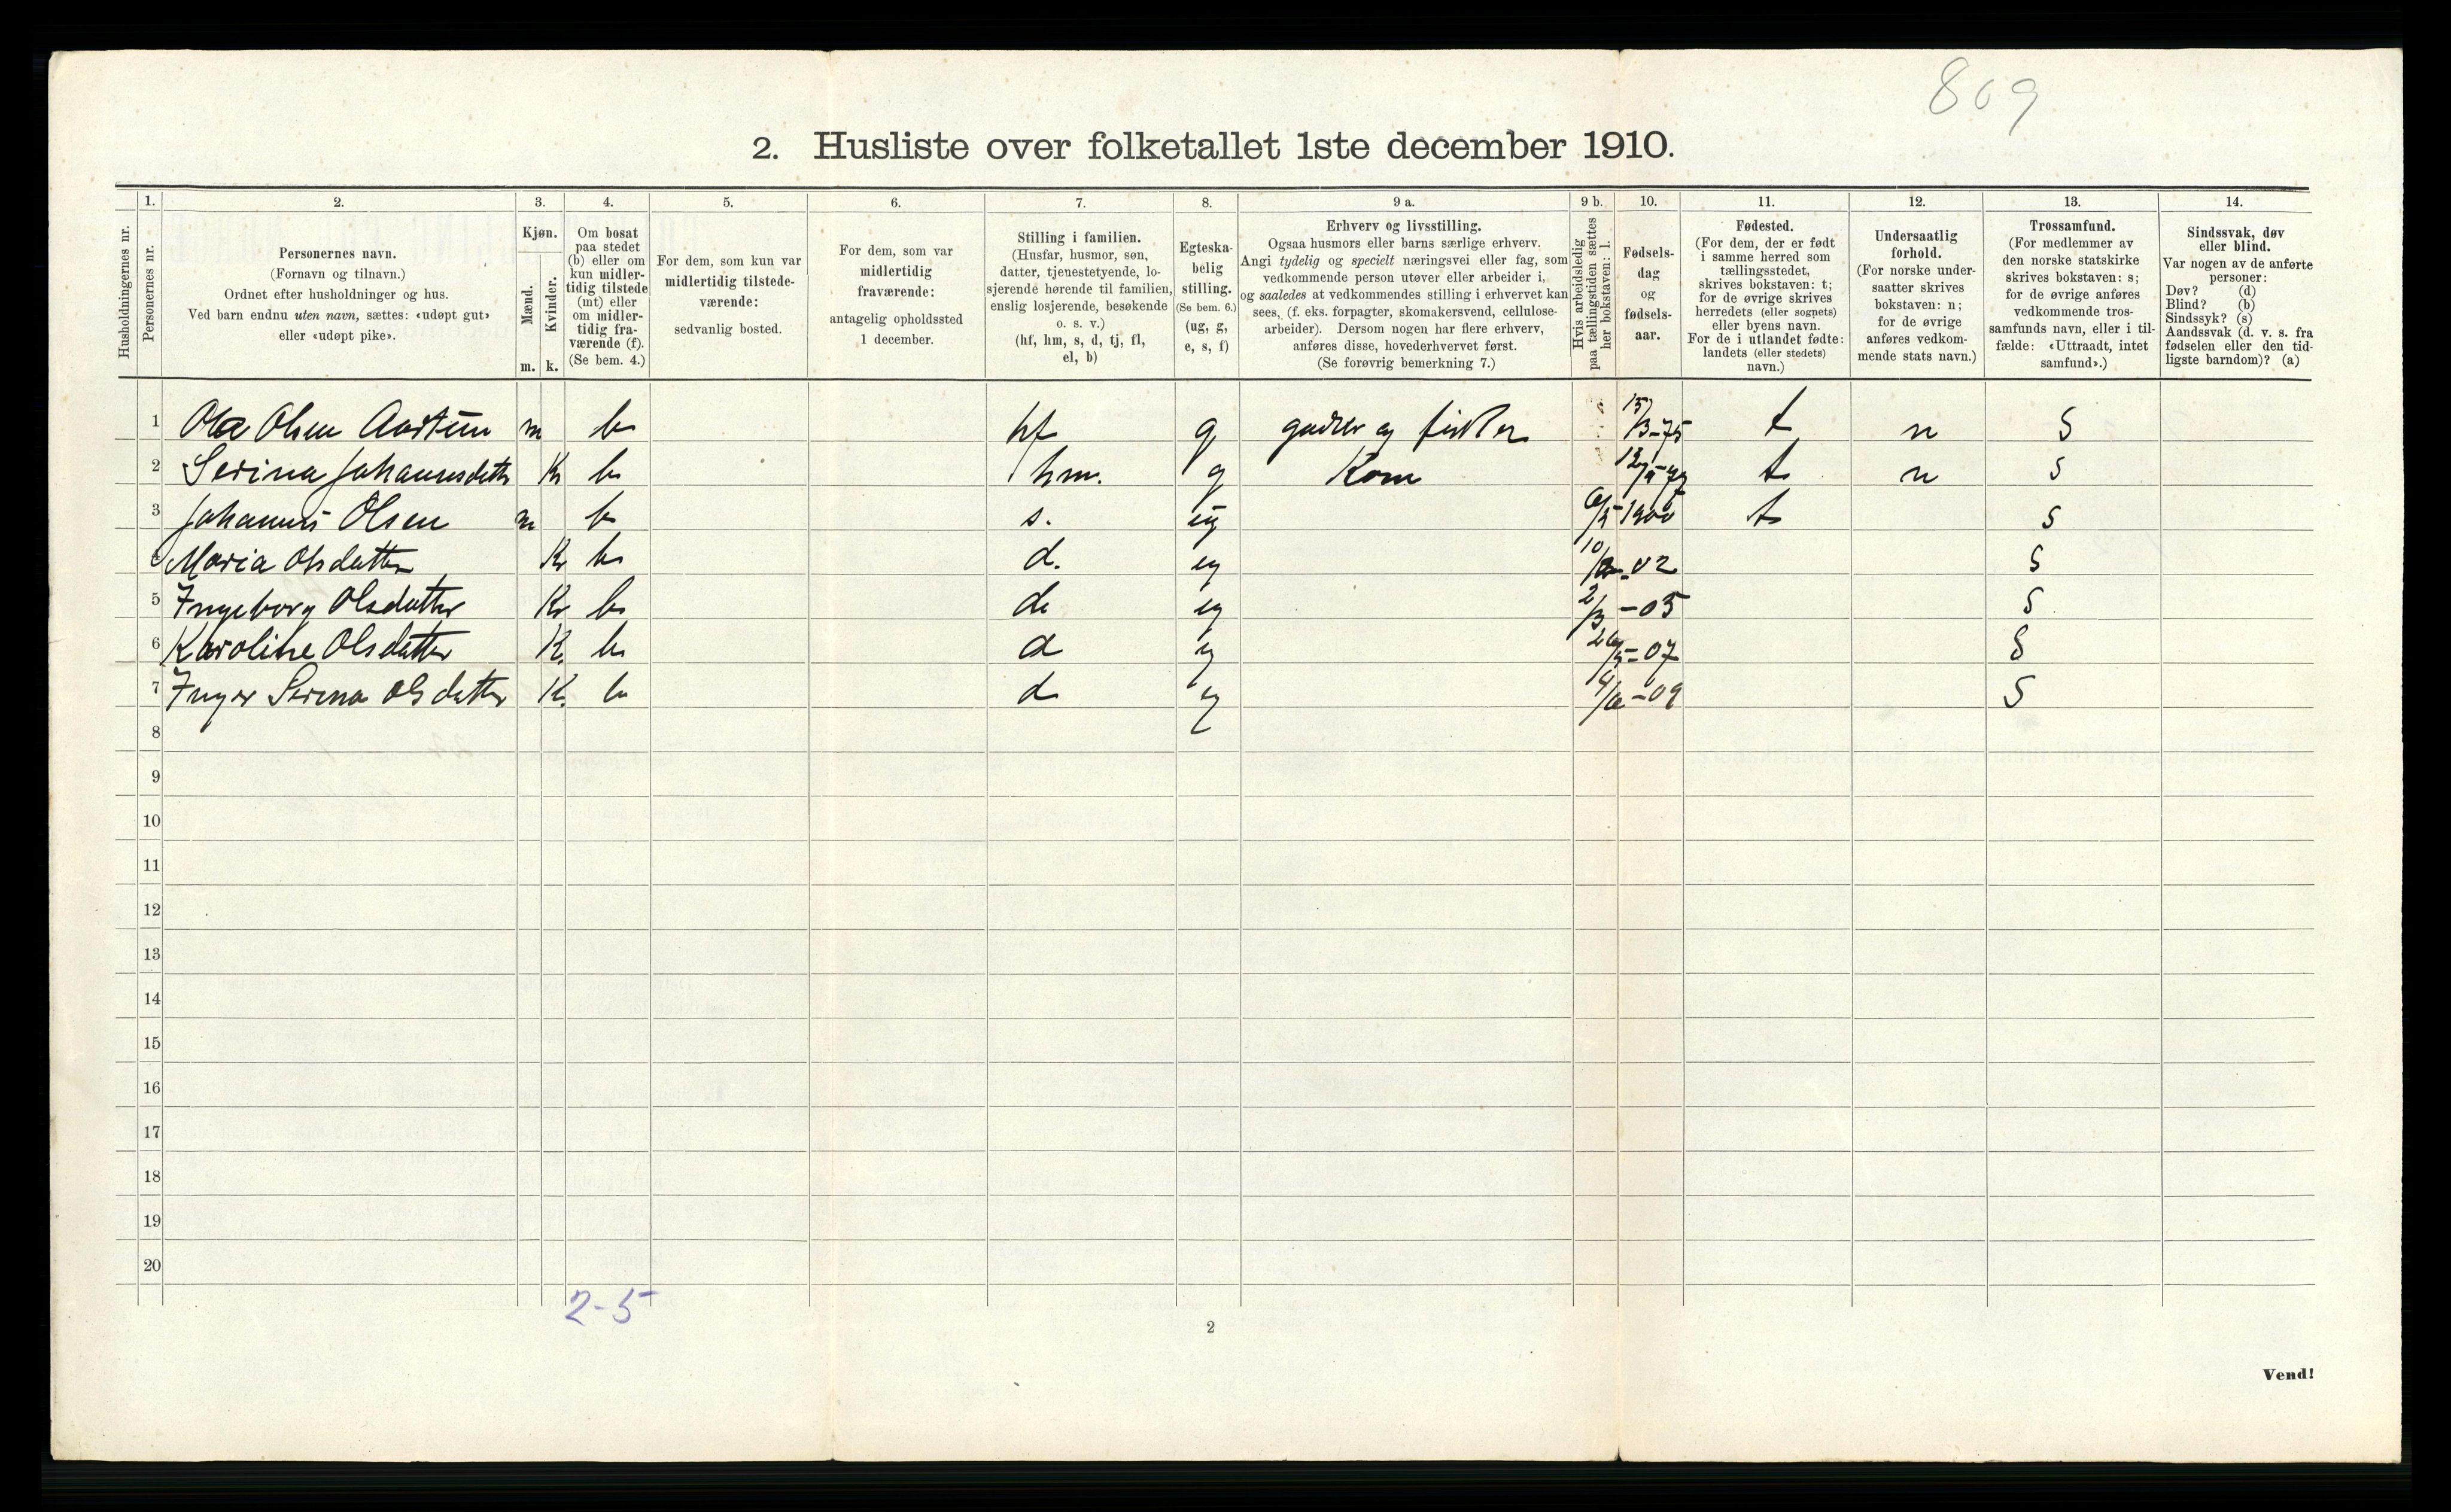 809
2. Husliste over folketallet 1ste december 1910.
Husholdningernes nr.
1.
Personernes nr.
2.
Personernes navn.
(Fornavn og tilnavn.)
Ordnet efter husholdninger og hus.
Ved barn endnu uten navn, sættes: «udøpt gut»
eller «udøpt pike».
3.
Kjøn.
Mænd.
Kvinder.
m. k.
4.
Om bosat
paa stedet
(b) eller om
kun midler-
tidig tilstede
(mt) eller
om midler-
tidig fra-
værende (f).
(Se bem. 4.)
5.
For dem, som kun var
midlertidig tilstede-
værende:
sedvanlig bosted.
6.
For dem, som var
midlertidig
fraværende:
antagelig opholdssted
1 december.
7.
Stilling i familien.
(Husfar, husmor, søn,
datter, tjenestetyende, lo-
sjerende hørende til familien,
enslig losjerende, besøkende
o. s. v.)
(hf, hm, s, d, tj, fl,
el, b)
8.
Egteska-
belig
stilling.
(Se bem. 6.)
(ug, g,
e, s, f)
9 a.
Erhverv og livsstilling.
Ogsaa husmors eller barns særlige erhverv.
Angi tydelig og specielt næringsvei eller fag, som
vedkommende person utøver eller arbeider i,
og saaledes at vedkommendes stilling i erhvervet kan
sees, (f. eks. forpagter, skomakersvend, cellulose-
arbeider). Dersom nogen har flere erhverv,
anføres disse, hovederhvervet først.
(Se forøvrig bemerkning 7.)
9 b.
Hvis arbeidsledig
paa tællingstiden sættes
her bokstaven: l.
10.
Fødsels-
dag
og
fødsels-
aar.
11.
Fødested.
(For dem, der er født
i samme herred som
tællingsstedet,
skrives bokstaven: t;
for de øvrige skrives
herredets (eller sognets)
eller byens navn.
For de i utlandet fødte:
landets (eller stedets)
navn.)
12.
Undersaatlig
forhold.
(For norske under-
saatter skrives
bokstaven: n;
for de øvrige
anføres vedkom-
mende stats navn.)
13.
Trossamfund.
(For medlemmer av
den norske statskirke
skrives bokstaven: s;
for de øvrige anføres
vedkommende tros-
samfunds navn, eller i til-
fælde: «Uttraadt, intet
samfund».)
14.
Sindssvak, døv
eller blind.
Var nogen av de anførte
personer:
Døv? (d)
Blind? (b)
Sindssyk? (s)
Aandssvak (d. v. s. fra
fødselen eller den tid-
ligste barndom)? (a)
1 Ola Olsen m b hf g og fisker 15/3-75 t n S
2 Serina Johannesdatter K b hm. g Kone t n S
3 Johannes Olsen m b s. ug 1900 t S
4 Maria Olsdatter K b d. ug -02 S
5 Ingeborg Olsdatter K b d ug 2/3-05 S
6 Karoline Olsdatter K. b d ug 26/5-07 S
7 Inger Serina Olsdatter K. b d ug -09 S
8
9
10
11
12
13
14
15
16
17
18
19
20
2-5
2
Vend!